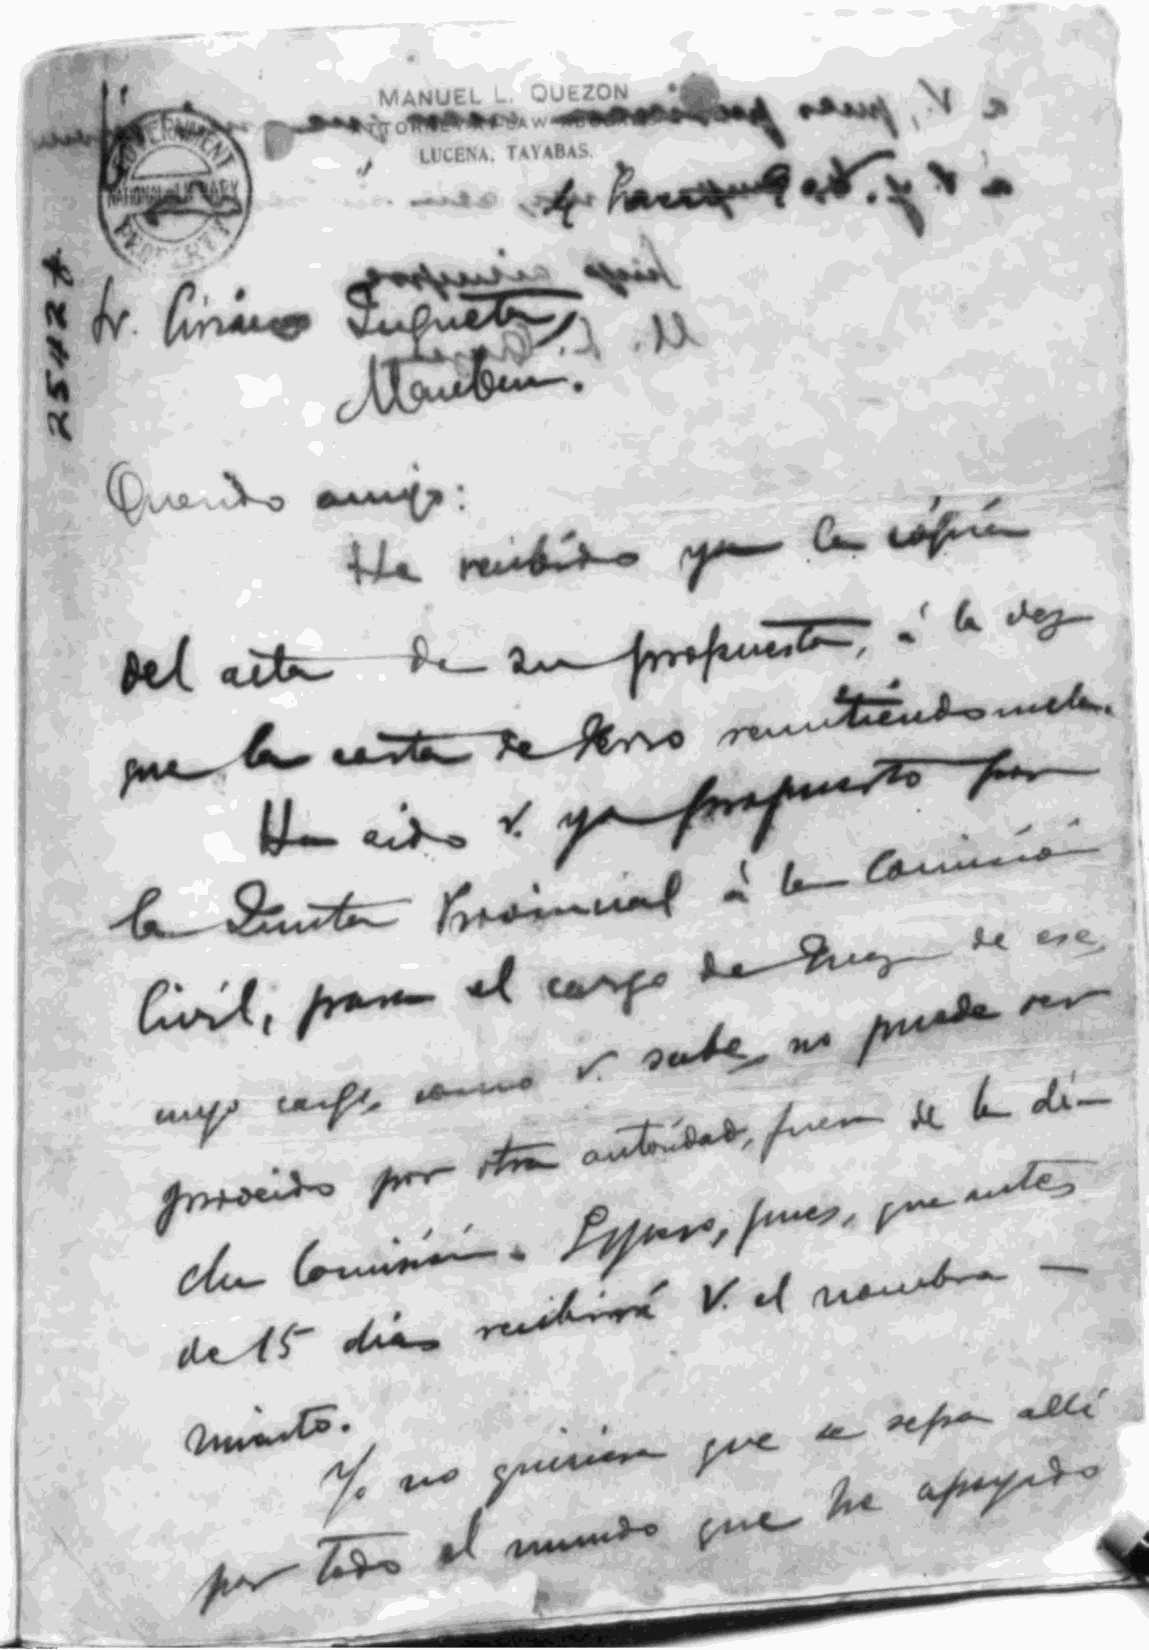 MANUEL L. QUEZON
ATTORNEY-AT-LAW
LUCENA, TAYABAS.
GOVERNMENT
NATIONAL LIBRARY
PROPERTY
25427
Sr. Ciriaco
Mauban.
Querido amigo:
He recibido ya la cópia
del acta de su propuesta, á la vez
que la carta de remitiéndomela.
Ha sido V. ya propuesto por
la Junta Provincial á la Comisión
Civil, para el cargo de Juez de ese,
cuyo cargo, como V. sabe, no puede ser
proveido por otra autoridad, fuera de la di-
cha Comisión. Espero, pues, que antes
de 15 dias recibirá V. el nombra-
miento.
Yo no quisiera que se sepa allí
por todo el mundo que he apoyado